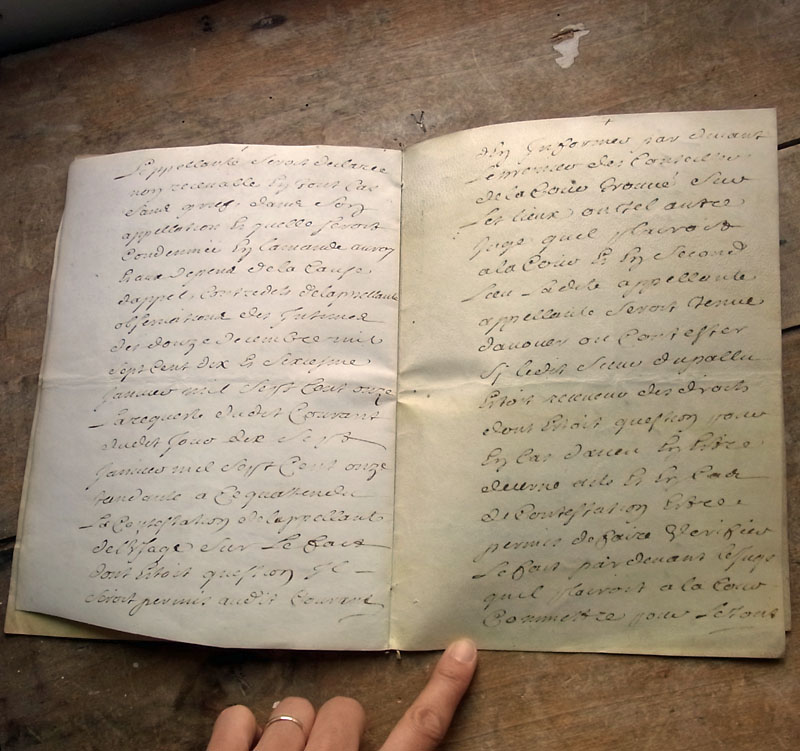 Lappellante seroit declarée
non recevable En tout Cas
sans grief dans son
appellation Et quelle seroit
Condamnée En lamande au roy
Et aux depens de la Cause
dappel Contredits delappellante
observations des Intimez
des douze decembre mil
sept Cent dix Et seixiesme
Janvier mil sept Cent onze
La requeste dudit Couvrant
dudit Jour dix sept
Janvier mil sept Cent onze
tendante a Cequattendu
La Contestation delappellante
de lusage sur Le fait
dont Estoit question Il
seroit permis audit Couvrant
den Informer par devant
Le premier des Conseillers
de la Cour trouvé sur
Les lieux ou tel autre
Juge quil plairoit
a la Cour Et En second
Lieu Ladite appellante
appellante seroit tenue
davouer ou Contester
Si ledit Sieur dupallu
Estoit receveur des droits
dont Estoit question pour
En Cas daveu En Estre
decerné acte Et En Cas
de Contestation Estre
permis de faire Verifier
Le fait par devant Le Juge
quil plairoit a la Cour
Commettre pour Le tout